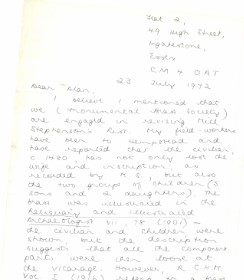 Flat 2,
49 High Street,
Ingatestone,
Essex
CM4 0AT
23 July 1972
Dear Alan,
I believe I mentioned that
we (Monumental Brass Society)
are engaged in revising Mill
Stephenson's List. My field-workers
have been to Hempstead and
have reported that the civilian,
c 1480 has not only lost the
wife and inscription, as
recorded by M.S., but also
the two groups of children (3
sons and 2 daughters). The
brass was illustrated in the
Reliquary and Illustrated
Archaeologist VII, 78 (1901) –
the civilian and children were
shown, but the description
suggests that all the component
parts were then loose at
the vicarage. However, R.C.H.M.